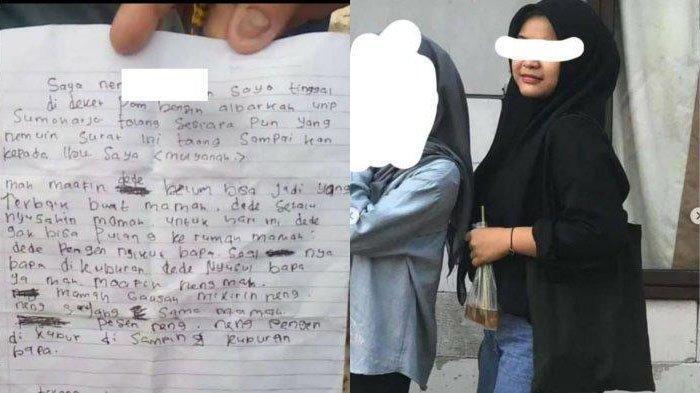 Saya nen Saya tinggal
di deket pom bensin albarkah unp
Sumoharjo tolong Sesiapa pun yang
nemuin Surat Ini tolong Sampai kan
kepada Ibu Saya <muyanah>
mah maafin dede belum bisa jadi yang
terbaik buat mamah. dede Selalu
nyusahin mamah. untuk hari ini dede
gak bisa pulang ke rumah mamah.
dede pengen ngikut bapa. Bagi nya
bapa di kuburan dede nyusul bapa
ya mah maafin neng mah.
mamah Gausah mikirin neng.
neng sayang Sama mamah.
pesen neng. neng pengen
di kubur di Samping kuburan
bapa.